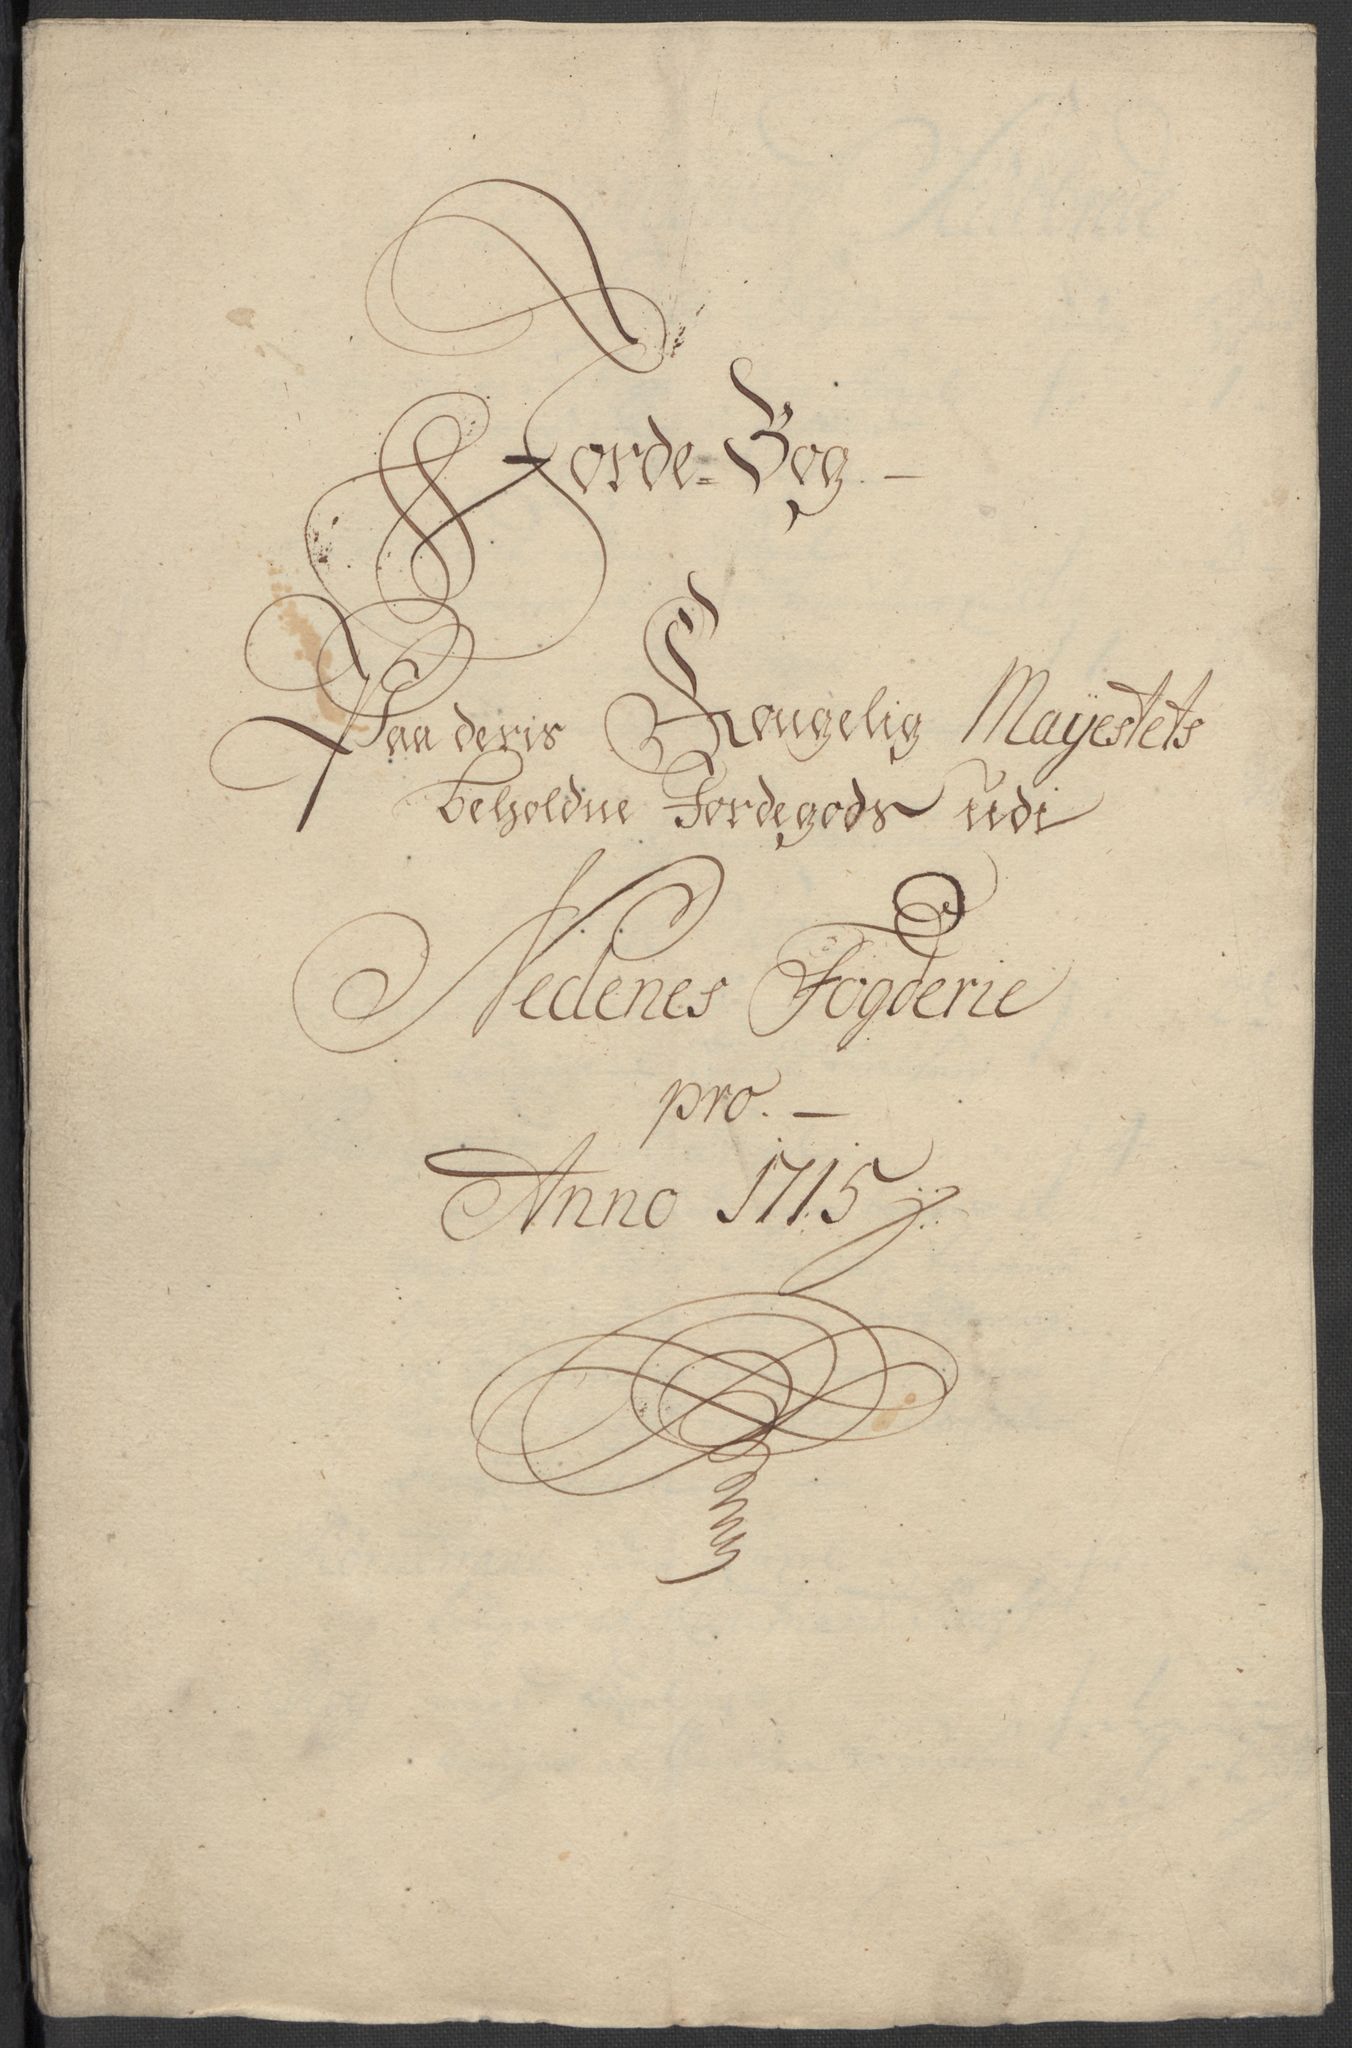 Jorde-Bog.
Paa deris Kongelig Mayestets
beholdne Jordegods udi
Nedenes Fogderie
pro.
Anno 1715